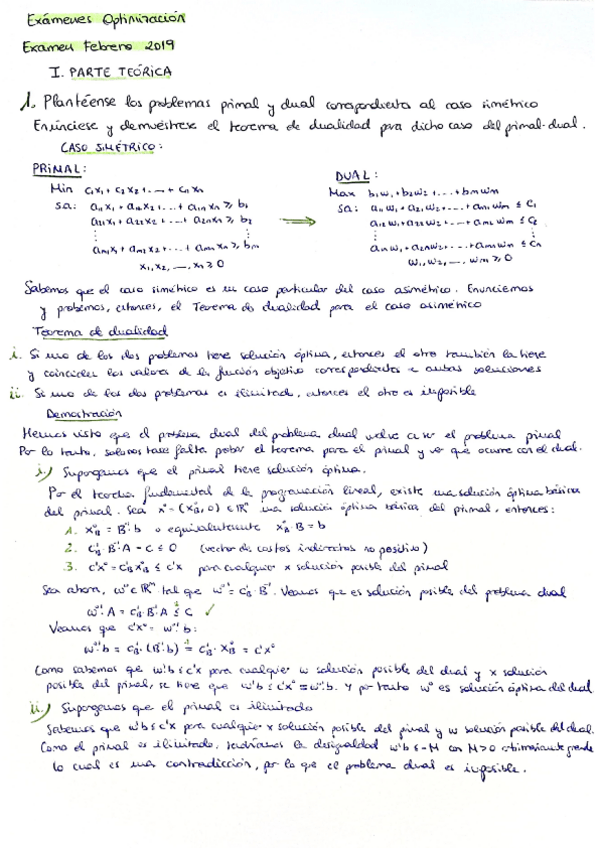 Exámenes Optimización
Examen Febrero 2019
I. PARTE TEÓRICA
1. Plantéense los problemas primal y dual correspondientes al caso simétrico
Enúnciese y demuéstrese el teorema de dualidad para dicho caso del primal-dual.
CASO SIMÉTRICO:
PRIMAL:
Min c₁x₁ + c₂x₂ + ... + cₙxₙ
sa: a₁₁x₁ + a₁₂x₂ + ... + a₁ₙxₙ ≥ b₁
a₂₁x₁ + a₂₂x₂ + ... + a₂ₙxₙ ≥ b₂
⋮
aₘ₁x₁ + aₘ₂x₂ + ... + aₘₙxₙ ≥ bₘ
x₁, x₂, ..., xₙ ≥ 0
DUAL:
Max b₁w₁ + b₂w₂ + ... + bₘwₘ
sa: a₁₁w₁ + a₂₁w₂ + ... + aₘ₁wₘ ≤ c₁
a₁₂w₁ + a₂₂w₂ + ... + aₘ₂wₘ ≤ c₂
⋮
a₁ₙw₁ + a₂ₙw₂ + ... + aₘₙwₘ ≤ cₙ
w₁, w₂, ..., wₘ ≥ 0
Sabemos que el caso simétrico es un caso particular del caso asimétrico. Enunciemos
y probemos, entonces, el Teorema de dualidad para el caso asimétrico
Teorema de dualidad
i. Si uno de los dos problemas tiene solución óptima, entonces el otro también la tiene
y coinciden los valores de la función objetivo correspondientes a ambas soluciones
ii. Si uno de los dos problemas es ilimitado, entonces el otro es imposible
Demostración
Hemos visto que el problema dual del problema dual vuelve a ser el problema primal
Por lo tanto, solo nos hace falta probar el teorema para el primal y ver que ocurre con el dual.
i.) Supongamos que el primal tiene solución óptima.
Por el teorema fundamental de la programación lineal, existe una solución óptima básica
del primal. Sea x° = (x°_B, 0) ∈ ℝⁿ una solución óptima básica del primal, entonces:
1. x°_B = B⁻¹b o equivalentemente x°_B B = b
2. c'_B B⁻¹A - c ≤ 0 (vector de costos indirectos no positivo)
3. c'x° = c'_B x°_B ≤ c'x para cualquier x solución posible del primal
Sea ahora, w° ∈ ℝᵐ tal que w°' = c'_B B⁻¹. Veamos que es solución posible del problema dual
w°'A = c'_B B⁻¹A ≤ c ✓
Veamos que c'x° = w°'b:
w°'b = c'_B (B⁻¹b) = c'_B x°_B = c'x°
Como sabemos que w'b ≤ c'x para cualquier w solución posible del dual y x solución
posible del primal, se tiene que w'b ≤ c'x° = w°'b. Y por tanto w° es solución óptima del dual
ii.) Supongamos que el primal es ilimitado
Sabemos que w'b ≤ c'x para cualquier x solución posible del primal y w solución posible del dual.
Como el primal es ilimitado, tendríamos la desigualdad w'b ≤ -M con M>0 arbitrariamente grande
lo cual es una contradicción, por lo que el problema dual es imposible.